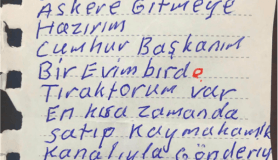 Askere Gitmeye
Hazırım
Cumhur Başkanım
Bir Evim birde
Tıraktorum var
En kısa zamanda
satıp Kaymakamlık
kanalıyla Gönderiy